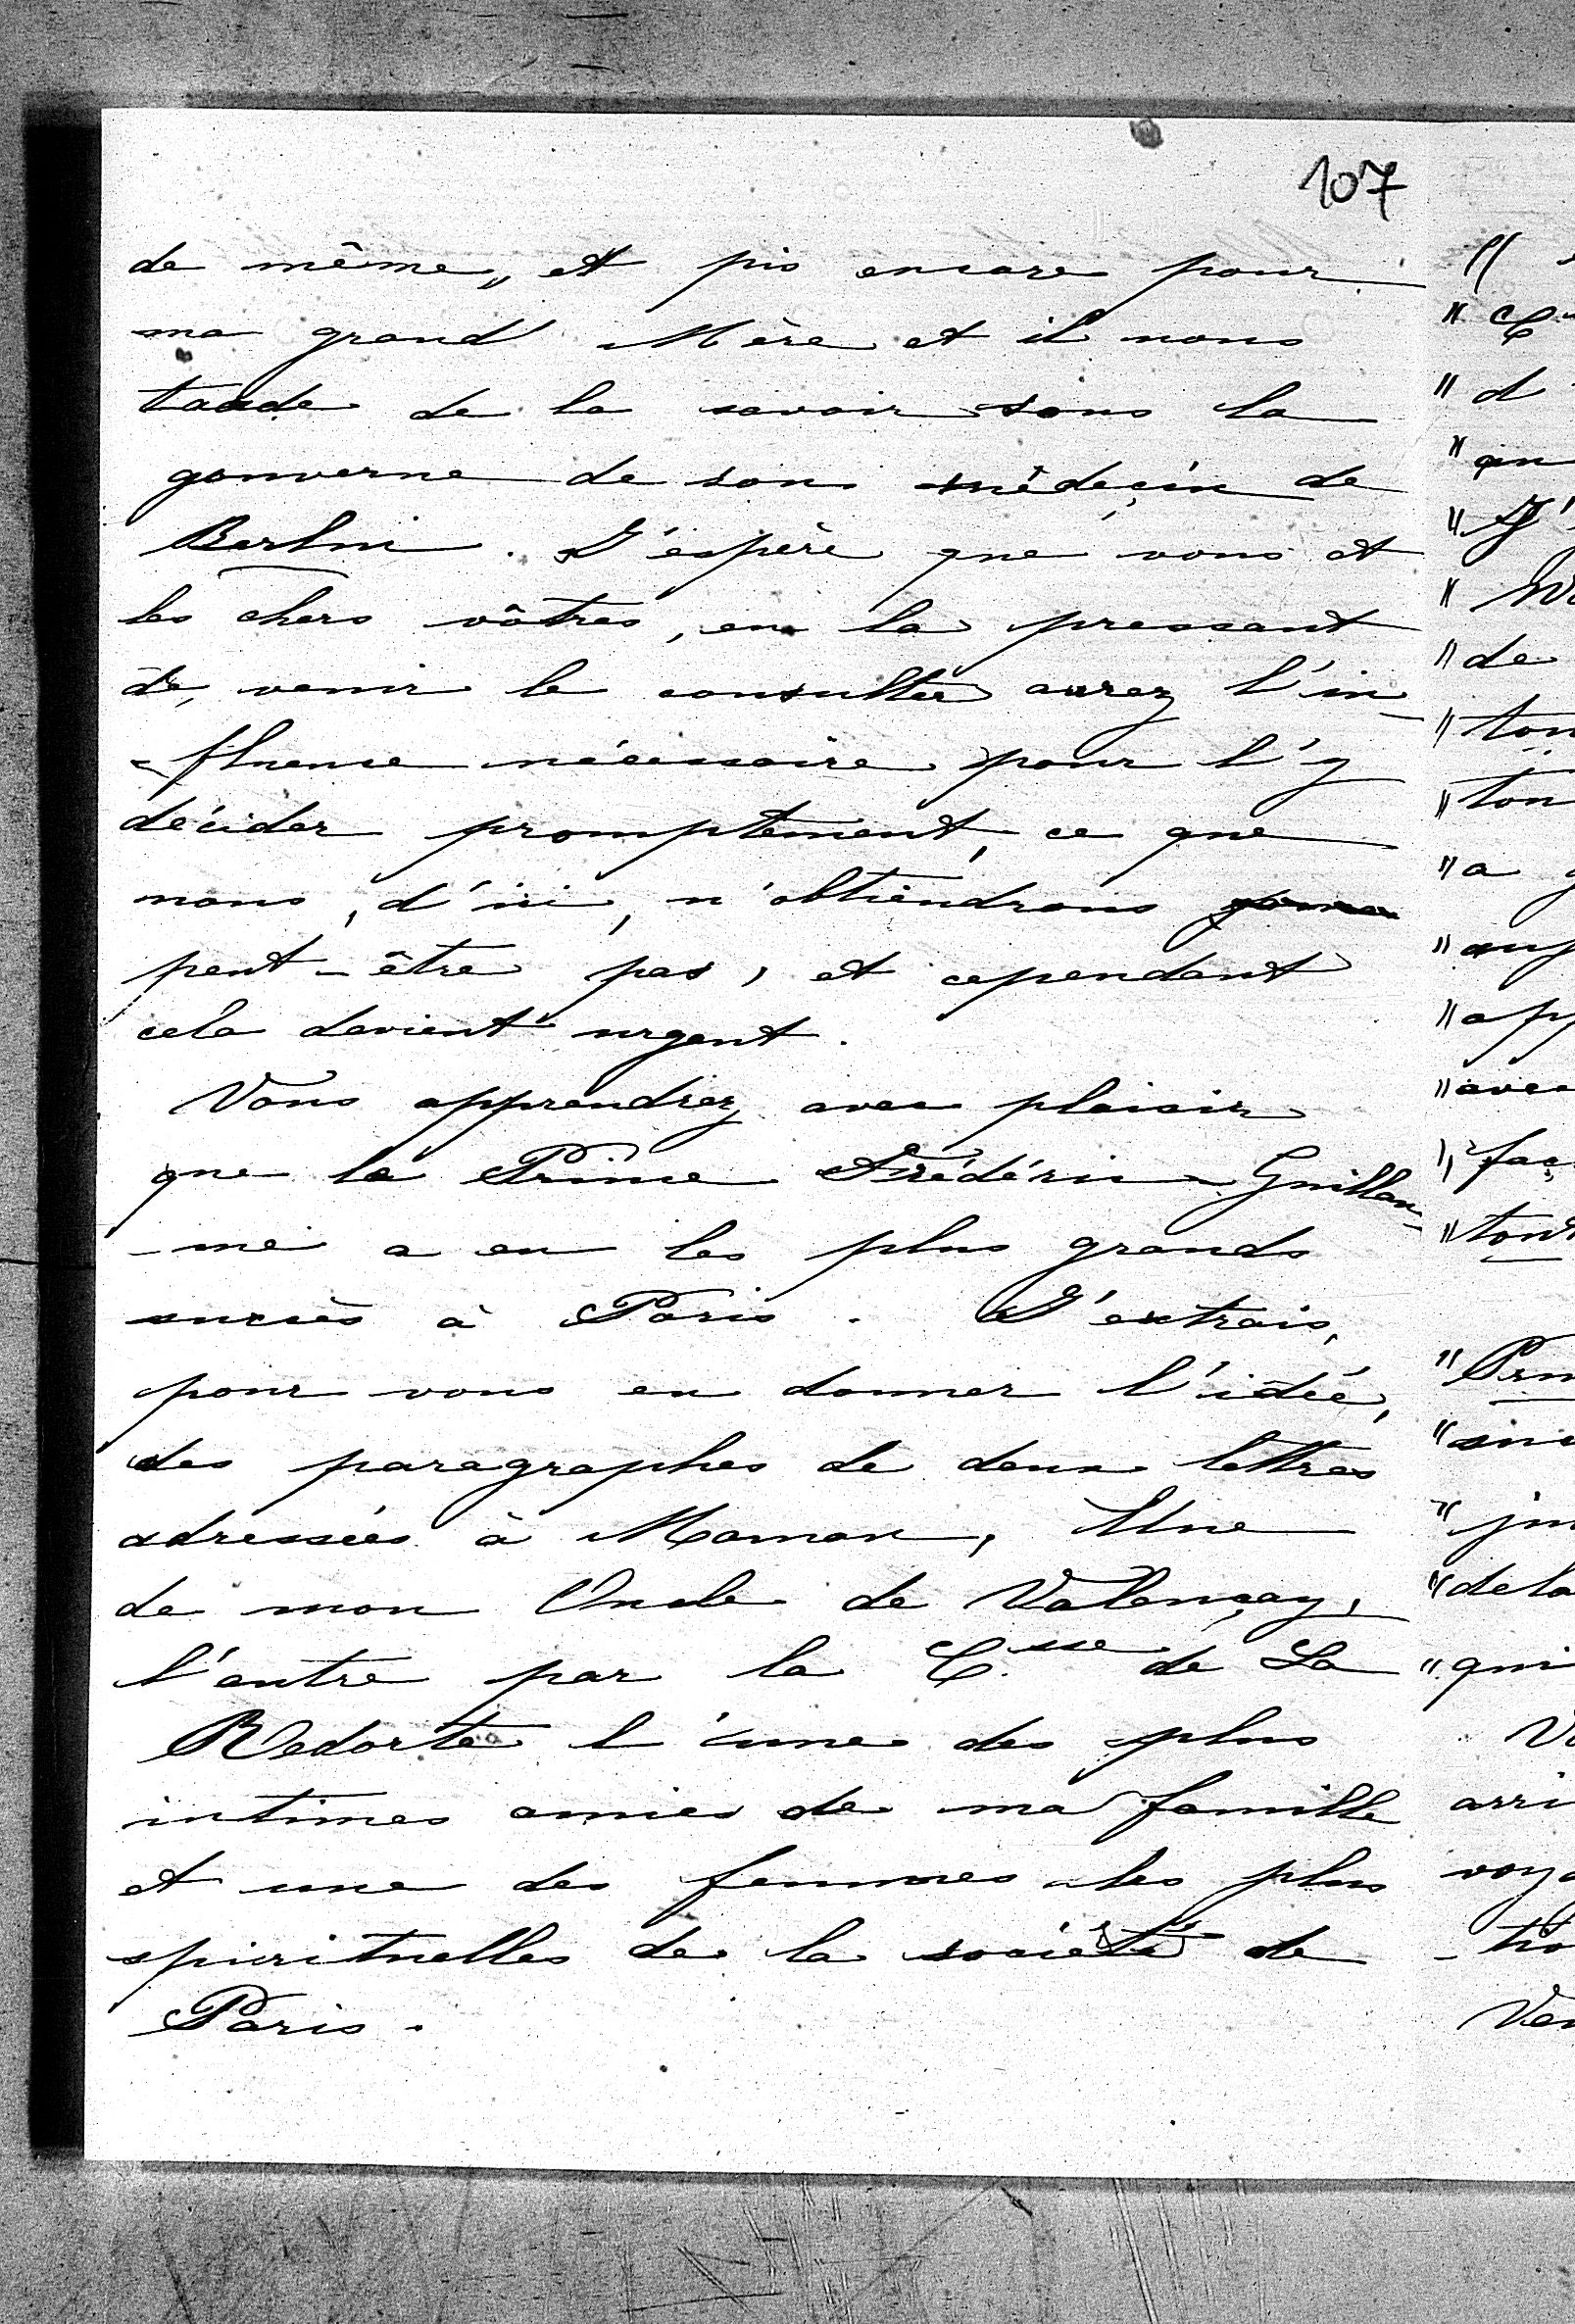 107
de même, et pis encore pour
ma grand Mère et il nous
tarde de la savoir sous la
gouverne de son médecin de
Berlin. J'espère que vous et
les chers vôtres, en la pressant
de venir le consulter aurez l'in-
-fluence nécessaire pour l'y
décider promptement, ce que
nous, d'ici, n'obtiendrons
peut-être pas, et cependant
cela devient urgent.
Vous apprendrez avec plaisir
que le Prince Frédéric Guillau-
-me a eu les plus grands
succès à Paris. J'extrais,
pour vous en donner l'idée,
des paragraphes de deux lettres
adressées à Maman, Une
de mon Oncle de Valençay,
l'autre par la C.sse de La
Redorte l'une des plus
intimes amies de ma famille
et une des femmes les plus
spirituelles de la société de
Paris.